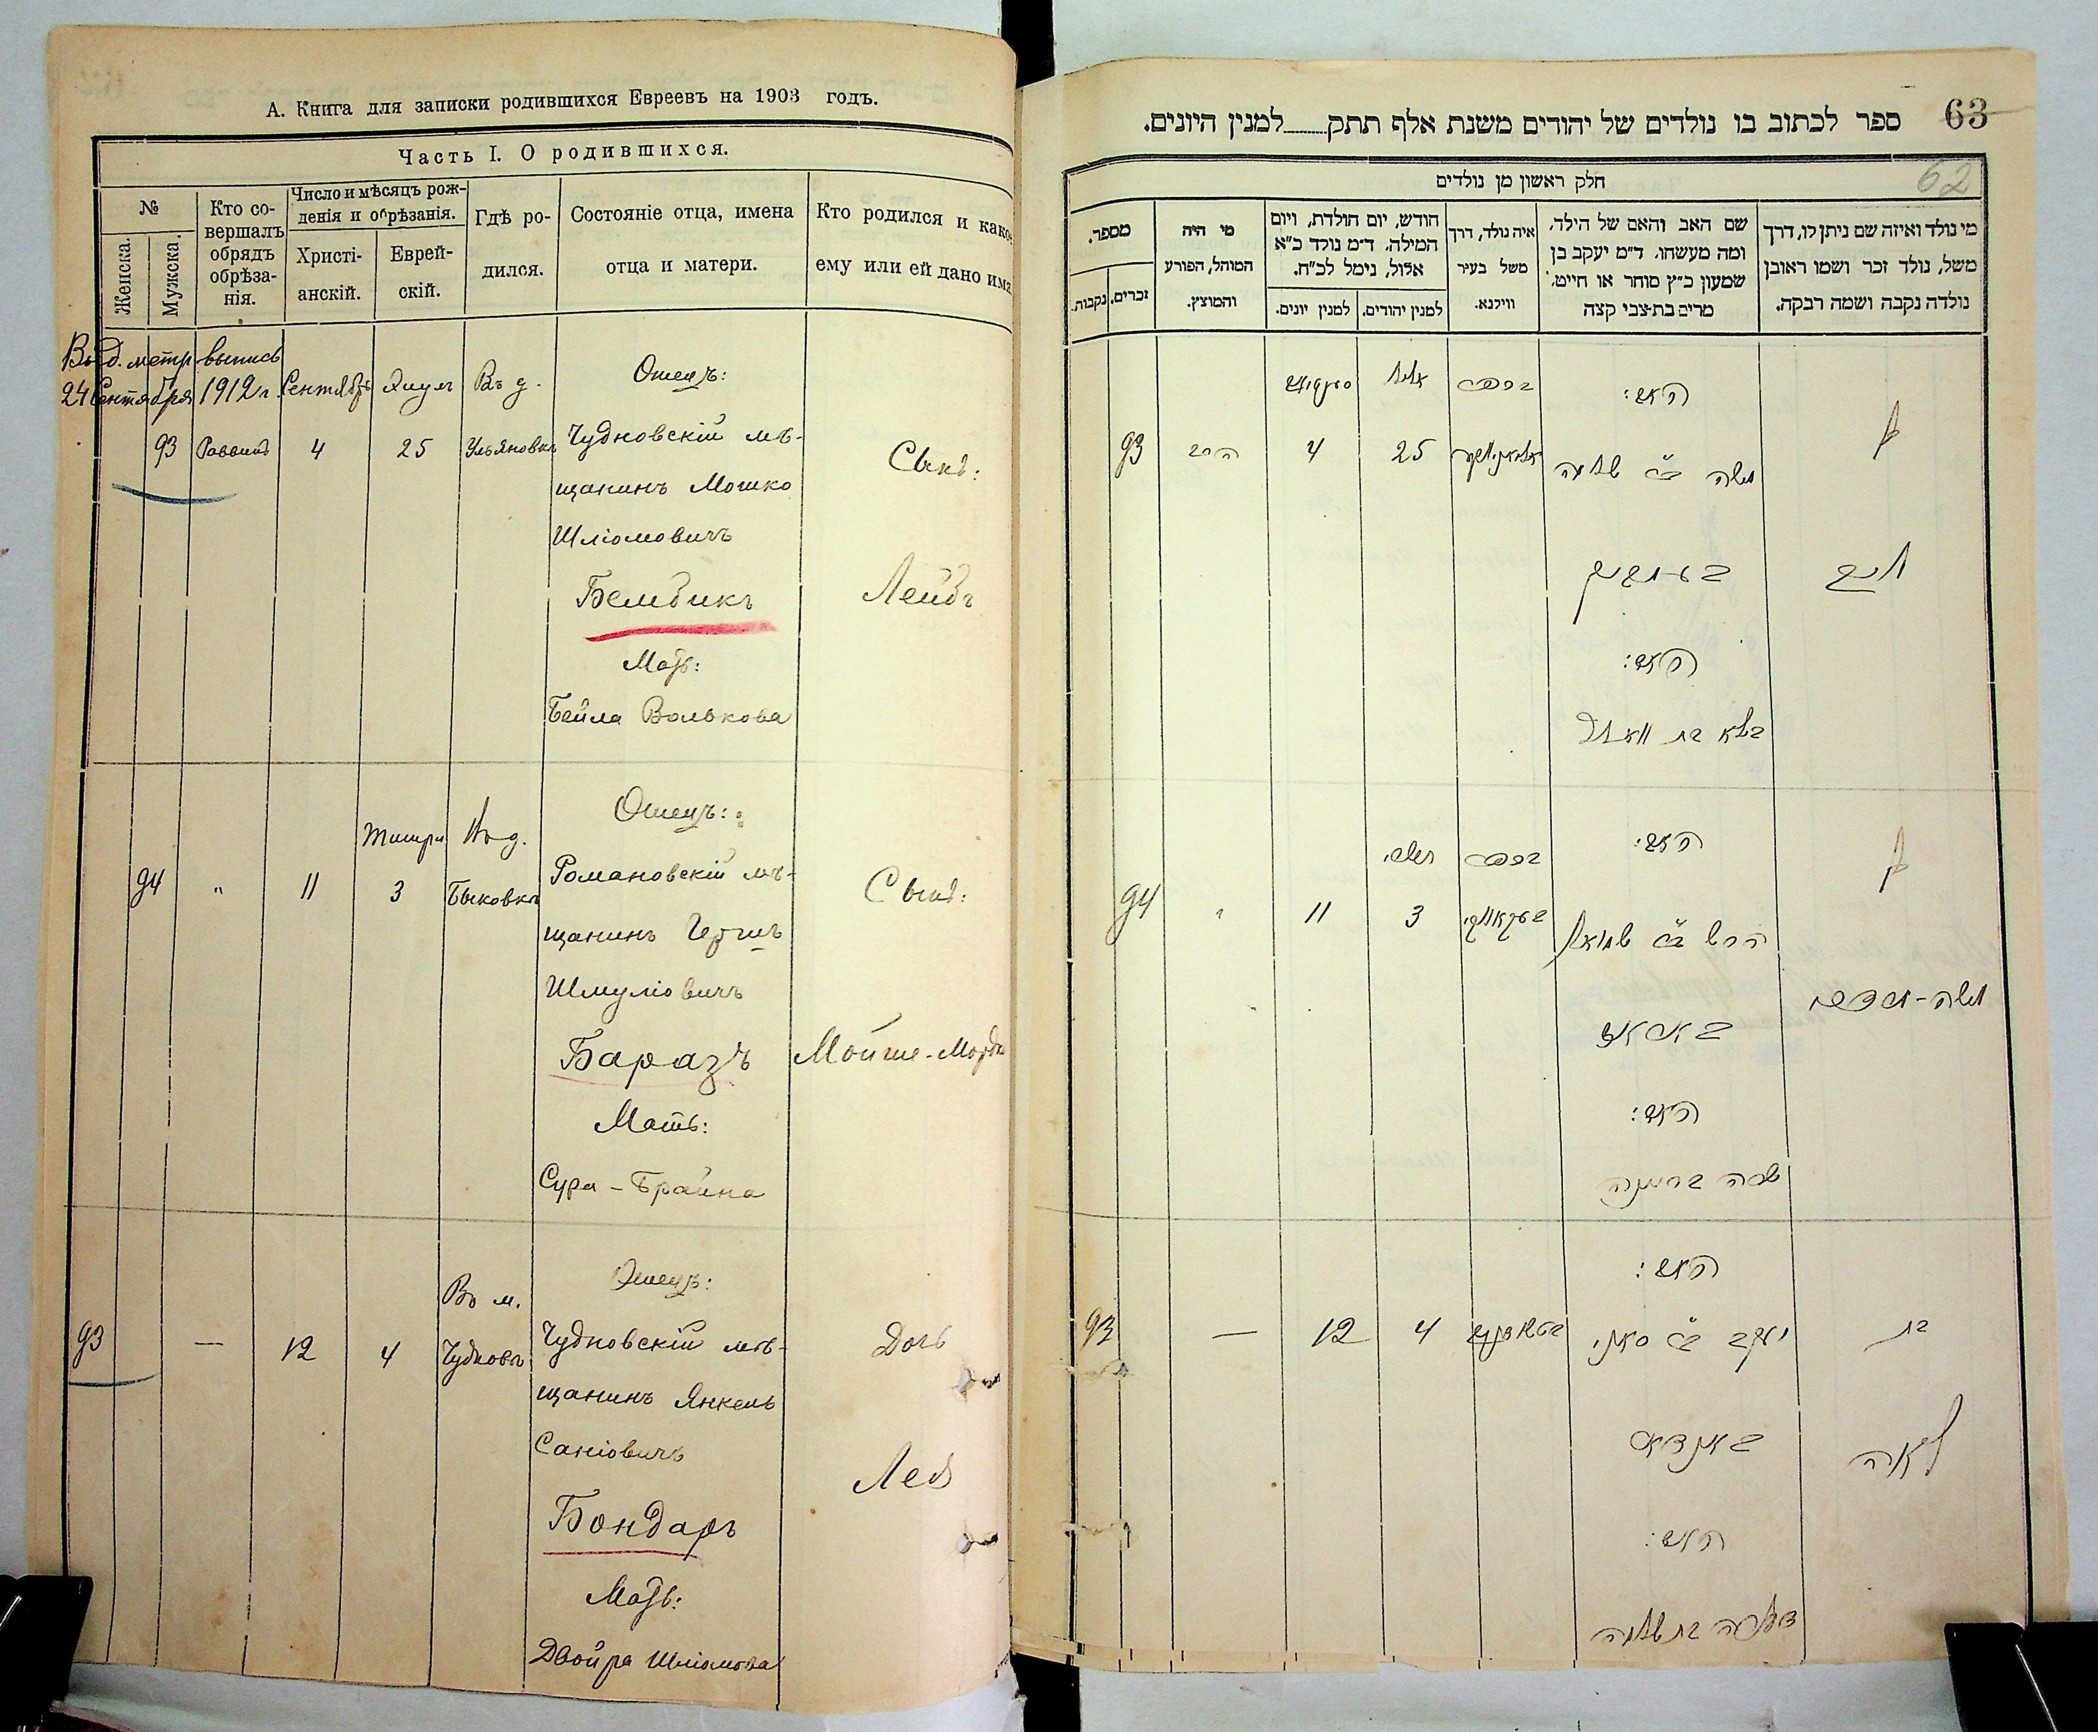 А. Книга для записки родившихся Евреевъ на 1903 годъ.
Часть I. О родившихся.
№
Женска.
Мужска.
Кто со-
вершалъ
обрядъ
обрѣза-
нія.
Число и мѣсяцъ рож-
денія и обрѣзанія.
Христі-
анскій.
Еврей-
скій.
Гдѣ ро-
дился.
Состояніе отца, имена
отца и матери.
Кто родился и како
ему или ей дано имя
Выд. метр. выпись
24 Сентября 1912 г.
Сентябрь
Элулъ
Въ д.
Отецъ:
93 Раввинъ 4 25 Ульяновкѣ
Чудновскій мѣ-
щанинъ Мошко
Шліомовичъ
Бембикъ
Мать:
Бейла Волькова
Сынъ:
Лейбъ
Тишри
Въ д.
Отецъ:
94 " 11 3 Быковкѣ
Романовскій мѣ-
щанинъ Гершъ
Шмуліовичъ
Баразъ
Мать:
Сура-Брайна
Сынъ:
Мойше-Мордк
Въ м.
Отецъ:
93 — 12 4 Чудновъ
Чудновскій мѣ-
щанинъ Янкель
Саніовичъ
Бондаръ
Мать:
Двойра Шліомова
Дочь
Лея
63
ספר לכתוב בו נולדים של יהודים משנת אלף תתק למנין היונים.
62
חלק ראשון מן נולדים
מי נולד ואיזה שם ניתן לו, דרך
משל, נולד זכר ושמו ראובן
נולדה נקבה ושמה רבקה.
שם האב והאם של הילד,
ומה מעשהו. ד״מ יעקב בן
שמעון כ״ץ סוחר או חייט,
מרים בת-צבי קצה
איה נולד, דרך
משל בעיר
ווילנא.
חודש, יום הולדת, ויום
המילה, ד״מ נולד כ״א
אלול, נימל לכ״ח.
למנין יהודים.
למנין יונים.
מי היה
המוהל, הפורע
והמוצץ.
מספר.
זכרים.
נקבות.
אלול
האב:
בן
93 הרב 4 25
משה ב״ר שלמה
בעמביק
לייב
האם:
בילא בת וואלף
תשרי
האב:
בן
94 " 11 3
הרש ב״ר שמואל
באראז
משה-מרדכי
האם:
שרה בריינה
האב:
בת
93 — 12 4
יעקב ב״ר סאני
באנדאר
לאה
האם:
דבורה בת שלמה